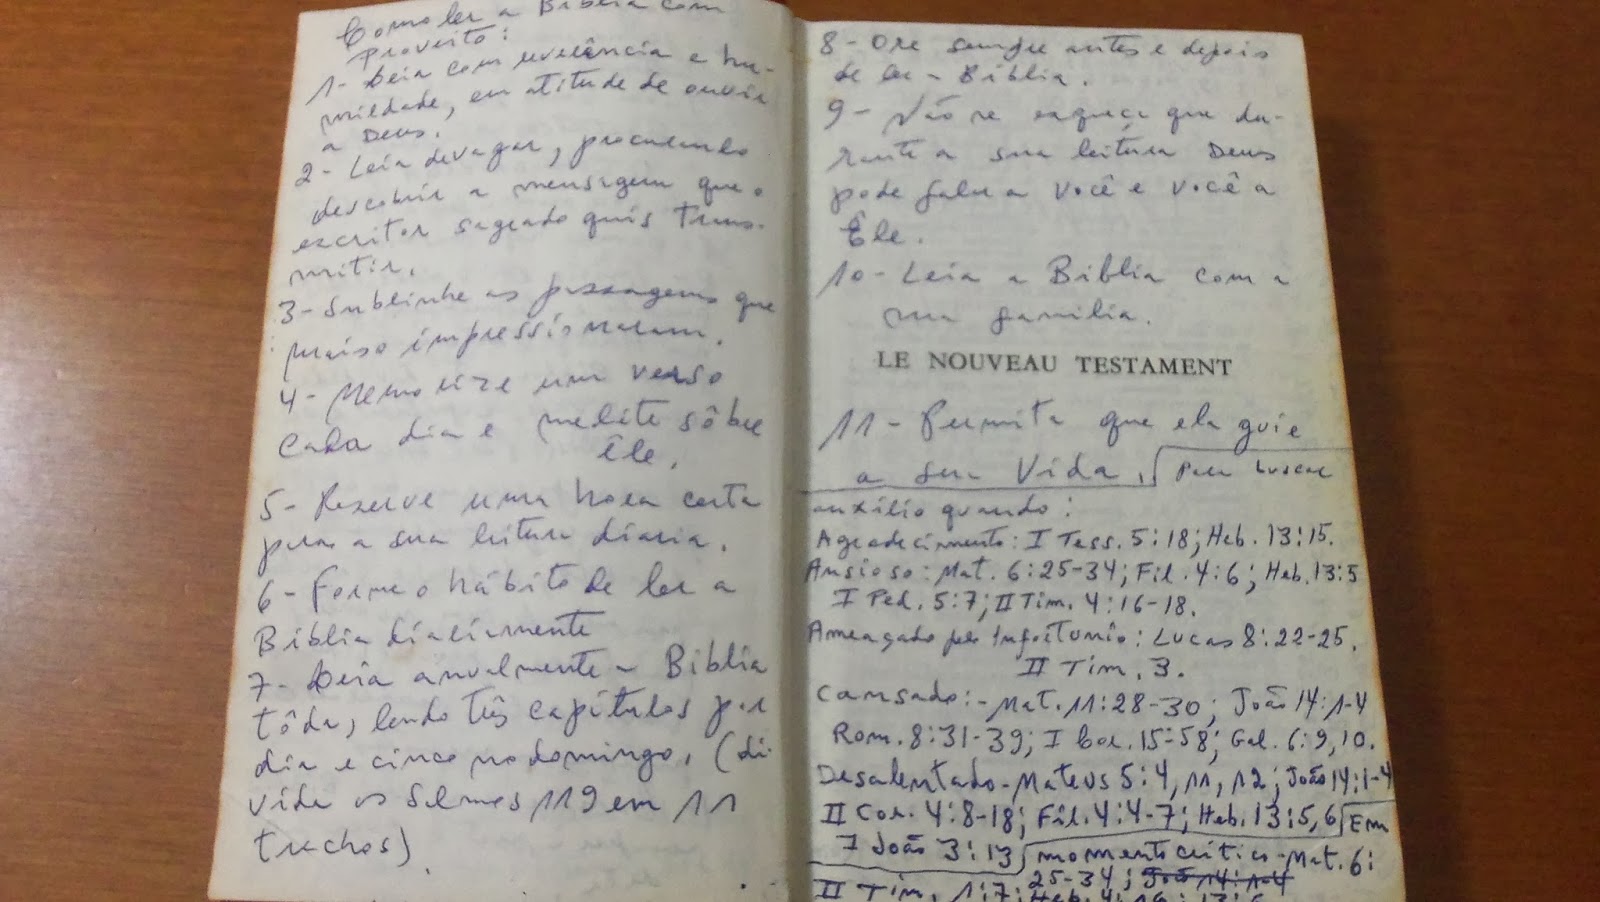 Como ler a Bíblia com
proveito:
1- Leia com reverência e hu-
mildade, em atitude de ouvir
a Deus.
2- Leia devagar, procurando
descobrir a mensagem que o
escritor sagrado quis trans-
mitir.
3- Sublinhe as passagens que
mais o impressionaram.
4- Memorize um verso
cada dia e medite sôbre
êle.
5- Reserve uma hora certa
para a sua leitura diária.
6- Forme o hábito de ler a
Bíblia diàriamente
7- Leia anualmente a Bíblia
tôda, lendo três capítulos por
dia e cinco no domingo. (di-
vida os Salmos 119 em 11
trechos)
8- Ore sempre antes e depois
de ler a Bíblia.
9- Não se esqueça que du-
rante a sua leitura Deus
pode falar a você e você a
Êle.
10- Leia a Bíblia com a
sua família.
LE NOUVEAU TESTAMENT
11- Permita que ela guie
a sua vida. Para buscar
auxílio quando:
Agradecimento: I Tess. 5:18; Heb. 13:15.
Ansioso: Mat. 6:25-34; Fil. 4:6; Heb. 13:5
I Ped. 5:7; II Tim. 4:16-18.
Ameaçado pelo Infortúnio: Lucas 8:22-25.
II Tim. 3.
Cansado:- Mat. 11:28-30; João 14:1-4
Rom. 8:31-39; I Cor. 15-58; Gal. 6:9,10.
Desalentado- Mateus 5:4, 11, 12; João 14:1-4
II Cor. 4:8-18; Fil. 4:4-7; Heb. 13:5,6 Em
I João 3:13 momento crítico- Mat. 6:
25-34; João 14:1-4
II Tim. 1:7; Heb. 4:16